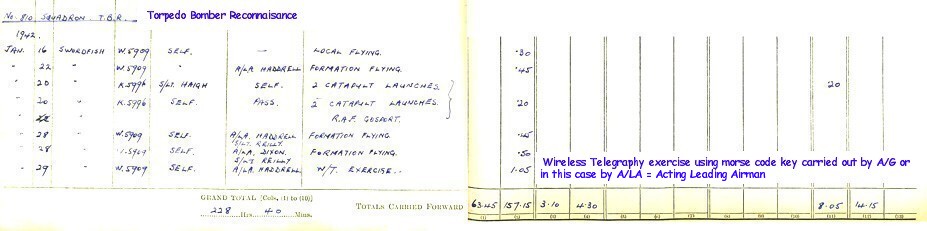 No. 810 SQUADRON T.B.R. Torpedo Bomber Reconnaisance
1942.
JAN. 16 SWORDFISH W.5909 SELF. — LOCAL FLYING. ·30
" 22 " W.5909 " A/LA HADDRELL FORMATION FLYING. ·45
" 20 " K.5996 S/LT. HAIGH SELF. 2 CATAPULT LAUNCHES. 20
" 20 " K.5996 SELF. PASS. 2 CATAPULT LAUNCHES. 20
R.A.F. GOSPORT.
" 28 " W.5909 SELF. A/LA. HADDRELL FORMATION FLYING. ·45
S/LT. REILLY.
" 28 " SELF. A/LA. DIXON. FORMATION FLYING. ·50
S/LT REILLY
" 29 " W.5909 SELF. A/LA. HADDRELL W/T. EXERCISE. 1·05
Wireless Telegraphy exercise using morse code key carried out by A/G or
in this case by A/LA = Acting Leading Airman
GRAND TOTAL [Cols. (1) to (10)]
228 Hrs. 40 Mins.
TOTALS CARRIED FORWARD 63·45 157·15 3·10 4·30 8·05 14·15